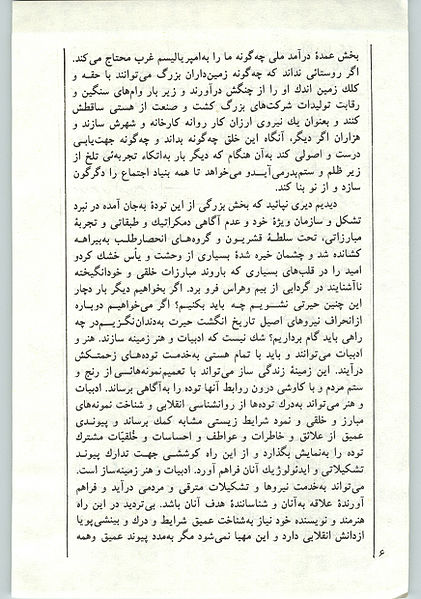 بخش عمدهٔ درآمد ملی چه‌گونه ما را به‌امپریالیسم غرب محتاج می‌کند.
اگر روستائی نداند که چه‌گونه زمین‌داران بزرگ می‌توانند با حقه و
کلك زمین اندك او را از چنگش درآورند و زیر بار وام‌های سنگین و
رقابت تولیدات شرکت‌های بزرگ کشت و صنعت از هستی ساقطش
کنند و بعنوان یك نیروی ارزان کار روانه کارخانه و شهرش سازند و
هزاران اگر دیگر، آنگاه این خلق چه‌گونه بداند و چه‌گونه جهت‌یابی
درست و اصولی کند به‌آن هنگام که دیگر بار به‌اتکاء تجربه‌ئی تلخ از
زیر ظلم و ستم‌بدرمی‌آیــدو می‌خواهد تا همه بنیاد اجتماع را دگرگون
سازد و از نو بنا کند.
دیدیم دیری نپائید که بخش بزرگی از این تودهٔ به‌جان آمده در نبرد
تشکل و سازمان ویژهٔ خود و عدم آگاهی دمکراتیك و طبقاتی و تجربهٔ
مبارزاتی، تحت سلطـهٔ قشریــون و گروه‌هــای انحصارطلـب به‌بیراهـه
کشانده شد و چشمان خیره شدهٔ بسیاری از وحشت و یأس خشك کردو
امید را در قلب‌های بسیاری که باروند مبارزات خلقی و خودانگیخته
ناآشنایند در گردابی از بیم وهراس فرو برد. اگر بخواهیم دیگر بار دچار
این چنین حیرتی نشــویــم چــه بایــد بکنیـم؟ اگر می‌خواهیــم دوبـاره
ازانحراف نیروهای اصیل تاریخ انگشت حیرت به‌دندان‌نگــزیـــم‌در چه
راهی باید گام برداریم؟ شك نیست که ادبیات و هنر زمینه سازند. هنر و
ادبیات می‌توانند و باید با تمام هستی به‌خدمت توده‌هـای زحمتـکش
درآیند. این زمینهٔ زندگی ساز می‌تواند با تعمیم‌نمونه‌هائـی از رنج و
ستم مردم و با کاوشی درون روابط آنها توده را به‌آگاهی برساند. ادبیات
و هنر می‌تواند به‌درك توده‌ها از روانشناسی انقلابی و شناخت نمونه‌های
مبارز و خلقی و نمود شرایط زیستی مشابه کمك برساند و پیونـدی
عمیق از علائق و خاطرات و عواطف و احساسات و خُلقیّات مشترك
توده را به‌نمایش بگذارد و از این راه کوششی جهـت تدارك پیونـد
تشکیلاتی و ایدئولوژیك آنان فراهم آورد. ادبیات و هنر زمینه‌ساز است.
می‌تواند به‌خدمت نیروها و تشکیلات مترقی و مردمی درآید و فراهم
آورندهٔ علاقه به‌آنان و شناسانندهٔ هدف آنان باشد. بی‌تردید در این راه
هنرمند و نویسنده خود نیاز به‌شناخت عمیق شرایط و درك و بینشی‌پویا
ازدانش انقلابی دارد و این مهیا نمی‌شود مگر به‌مدد پیوند عمیق وهمه
۶